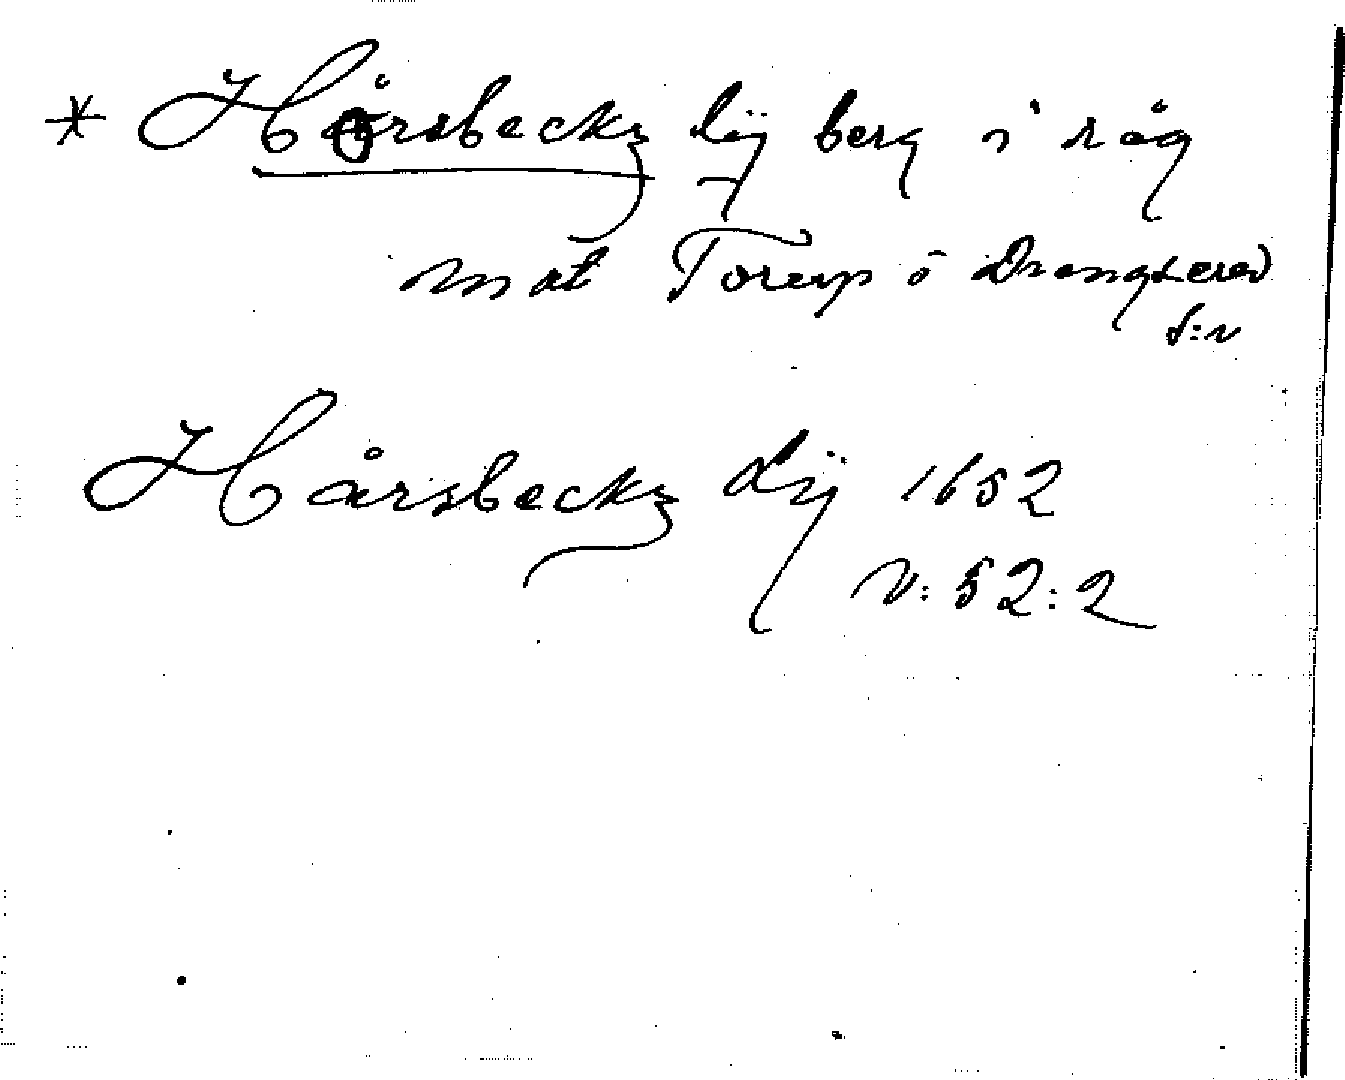 * Hårsbeckz lÿ berg i råg
mot Torup i Drengsered
s:n
Hårsbeckz Lÿ 1652
N: 52: 2